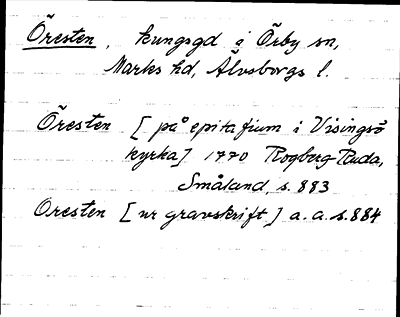 Öresten, kungsgd i Örby sn,
Marks hd, Älvsborgs l.
Öresten [på epitafium i Visingsö
kyrka] 1770 Rogberg-Ruda,
Småland, s. 883
Oresten [ur gravskrift] a. a. s. 884